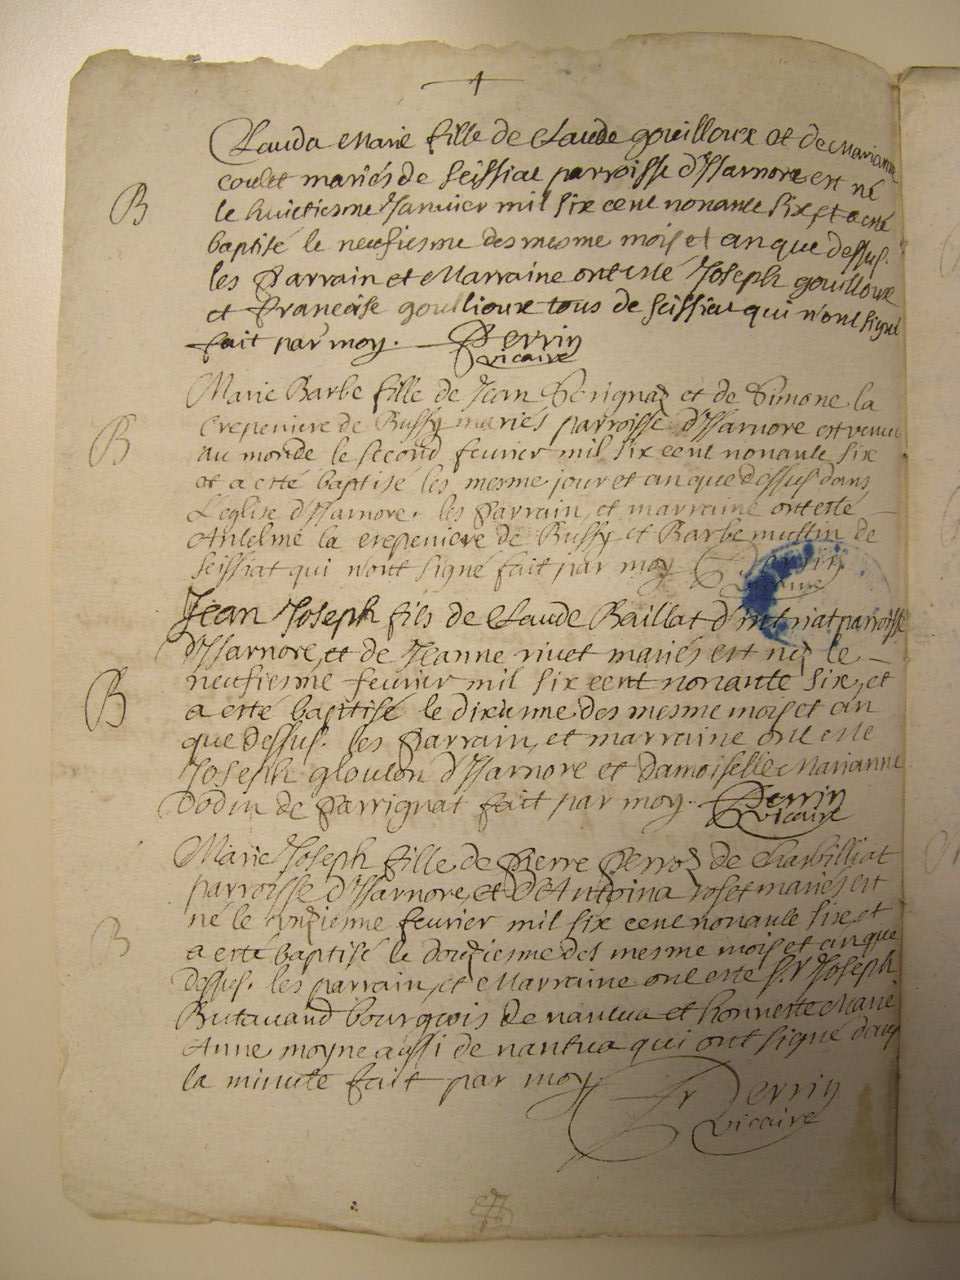 1
Clauda Marie fille de Claude gouilloux et de Marianne
coulet mariés de seissiat parroisse d'Isarnore est né
B
le huictiesme Janvier mil six cent nonante six et a esté
baptisé le neufiesme des mesme mois et an que dessus.
les Parrain et Marraine ont esté Joseph gouilloux
et Francoise goullioux tous de seissiat qui n'ont signé
fait par moy. Perrin
vicaire
Marie Barbe fille de Jean et de Simone la
crepeniere de Bussy mariés parroisse d'Isarnore est venue
B
au monde le second feuvrier mil six cent nonante six
et a esté baptisé les mesme jour et an que dessus dans
L'eglise d'Isarnore. les Parrain, et marraine ont esté
Antelme la crepeniere de Bussy et Barbe mussin de
seissiat qui n'ont signé fait par moy Perrin
vicaire
Jean Joseph fils de Claude Baillat d'intriat parroisse
d'Isarnore, et de Jeanne rivet mariés est né le
B
neufiesme feuvrier mil six cent nonante six, et
a esté baptisé le dixienne des mesme mois et an
que dessus. les Parrain, et marraine ont este
Joseph gloudon d'Isarnore et damoiselle Marianne
Dódin de Parrignat fait par moy. Perrin
vicaire
Marie Joseph fille de Pierre Perroz de Charbilliat
parroisse d'Isarnore, et d'Antoina roset mariés est
né le onzienne feuvrier mil six cent nonante six, et
B
a esté baptisé le douziesme des mesme mois et an que
dessus. les parrain, et Marraine ont esté s.r Joseph
Butavand bourgeois de nantua et honneste Marie
Anne moyne aussi de nantua qui ont signé dans
la minute fait par moy
Fr Perrin
vicaire